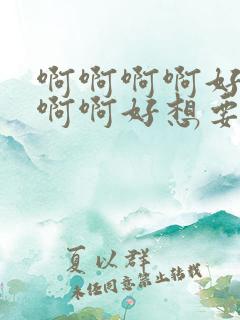 啊啊啊啊好
啊啊好想要
夏以群
未经同意禁止转载